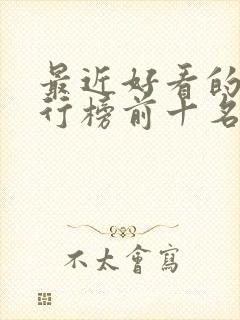 最近好看的
行榜前十名
不太會寫